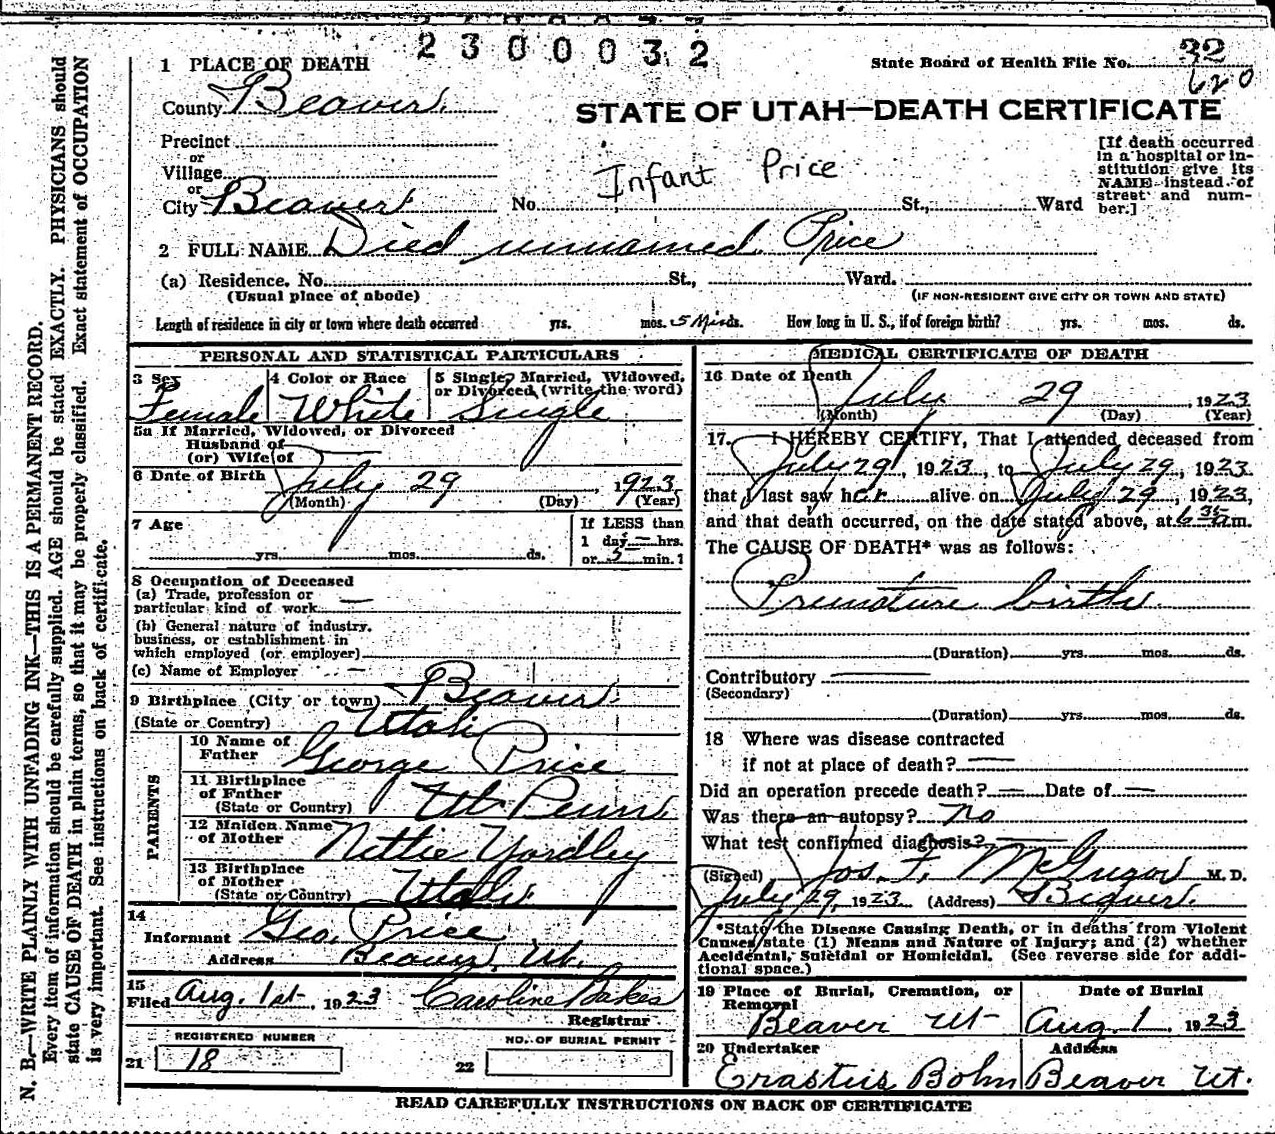 2300032
1 PLACE OF DEATH
State Board of Health File No. 32
620
County Beaver.
STATE OF UTAH—DEATH CERTIFICATE
Precinct
or
Village
or
City Beaver
Infant Price
No. St., Ward
[If death occurred
in a hospital or in-
stitution give its
NAME instead of
street and num-
ber.]
2 FULL NAME Died unnamed. Price
(a) Residence. No. St., Ward.
(Usual place of abode)
(IF NON-RESIDENT GIVE CITY OR TOWN AND STATE)
Length of residence in city or town where death occurred yrs. mos. 5 Min ds. How long in U. S., if of foreign birth? yrs. mos. ds.
PERSONAL AND STATISTICAL PARTICULARS
3 Sex
Female
4 Color or Race
White
5 Single, Married, Widowed,
or Divorced, (write the word)
Single
5a If Married, Widowed, or Divorced
Husband of
(or) Wife of —
6 Date of Birth July 29, 1923
(Month) (Day) (Year)
7 Age
yrs. mos. ds.
If LESS than
1 day — hrs.
or 5 min.
8 Occupation of Deceased
(a) Trade, profession or
particular kind of work —
(b) General nature of industry,
business, or establishment in
which employed (or employer)
(c) Name of Employer —
9 Birthplace (City or town) Beaver
(State or Country) Utah
PARENTS
10 Name of
Father George Price
11 Birthplace
of Father
(State or Country)
12 Maiden Name
of Mother Nettie Yardley
13 Birthplace
of Mother
(State or Country) Utah.
14
Informant Geo. Price
Address Beaver, Ut.
15
Filed Aug. 1st 1923 Caroline Bakes
Registrar
REGISTERED NUMBER
21 18
NO. OF BURIAL PERMIT
22
MEDICAL CERTIFICATE OF DEATH
16 Date of Death
July 29, 1923
(Month) (Day) (Year)
17. I HEREBY CERTIFY, That I attended deceased from
July 29, 1923, to July 29, 1923
that I last saw her alive on July 29, 1923,
and that death occurred, on the date stated above, at 6 35 a.m.
The CAUSE OF DEATH* was as follows:
Premature birth.
(Duration) yrs. mos. ds.
Contributory —
(Secondary)
(Duration) yrs. mos. ds.
18 Where was disease contracted
if not at place of death? —
Did an operation precede death? — Date of —
Was there an autopsy? no
What test confirmed diagnosis? —
(Signed) Jos. F. McGregor M. D.
July 29, 1923 (Address) Beaver.
*State the Disease Causing Death, or in deaths from Violent
Causes, state (1) Means and Nature of Injury; and (2) whether
Accidental, Suicidal or Homicidal. (See reverse side for addi-
tional space.)
19 Place of Burial, Cremation, or
Removal
Beaver Ut
Date of Burial
Aug. 1 1923
20 Undertaker
Erastus Bohn
Address
Beaver Ut.
READ CAREFULLY INSTRUCTIONS ON BACK OF CERTIFICATE
N. B.—WRITE PLAINLY WITH UNFADING INK—THIS IS A PERMANENT RECORD.
Every item of information should be carefully supplied. AGE should be stated EXACTLY. PHYSICIANS should
state CAUSE OF DEATH in plain terms, so that it may be properly classified. Exact statement of OCCUPATION
is very important. See instructions on back of certificate.